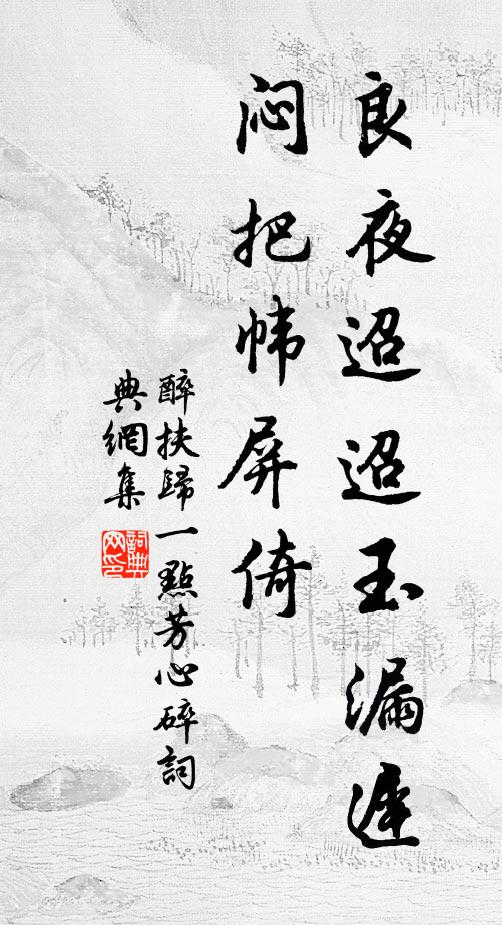 良夜迢迢玉漏遲
闷把帏屏倚
醉扶歸一點芳心碎詞
典網集
詞典网印